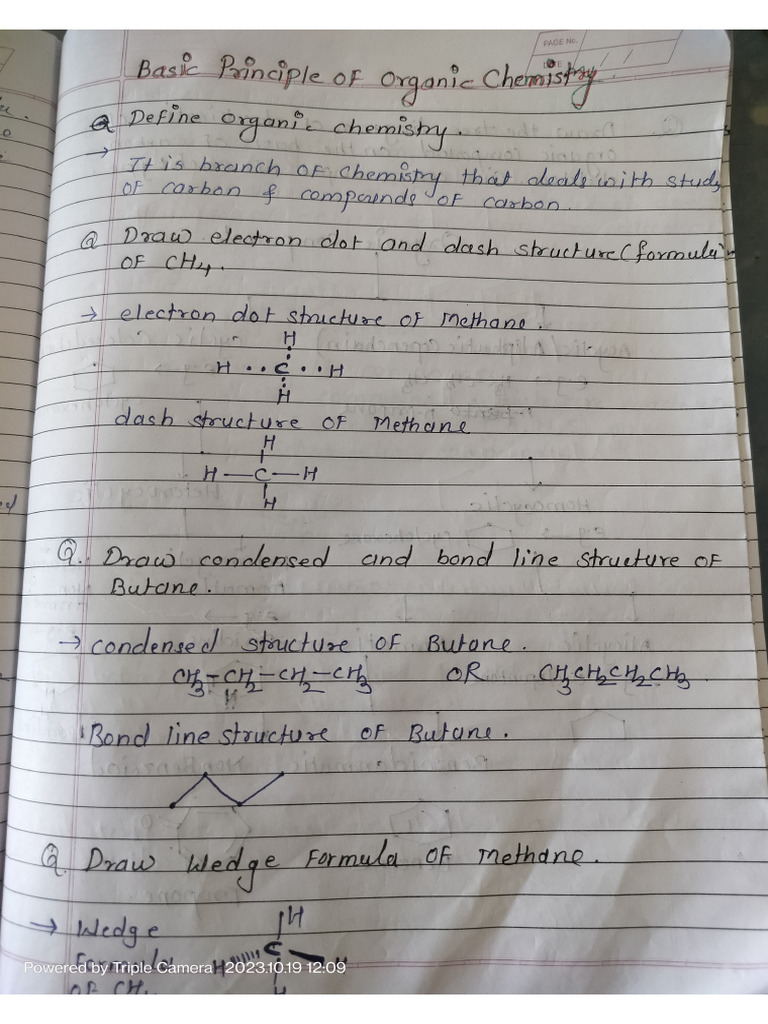 PAGE No.
Basic Principle OF Organic Chemistry.
Q Define organic chemistry.
→ It is branch of chemistry that deals with study
of carbon & compounds of carbon.
Q Draw electron dot and dash structure (formula)
OF CH4.
→ electron dot structure of Methane.
H
H •• C •• H
H
dash structure OF Methane
H
H — C — H
H
Q. Draw condensed and bond line structure OF
Butane.
→ condensed structure OF Butane.
CH3-CH2-CH2-CH3 OR CH3CH2CH2CH3
Bond line structure OF Butane.
Q. Draw Wedge Formula OF methane.
→ Wedge
H
Formula
H C H
OF CH
H
Powered by Triple Camera 2023.10.19 12:09